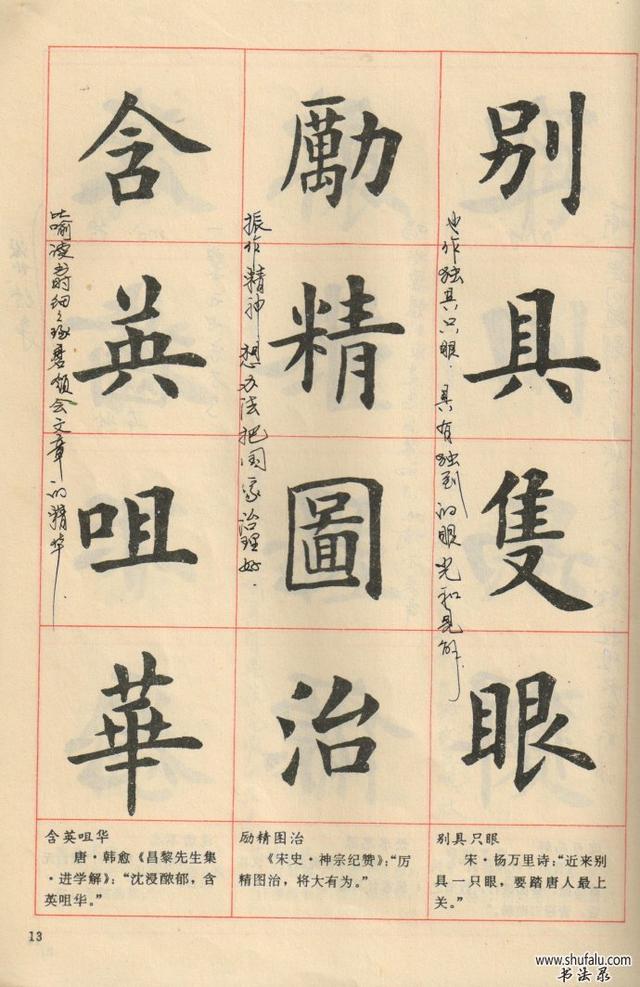 別具隻眼
也作独具只眼．具有独到的眼光和见解．
勵精圖治
振作精神 想办法把国家治理好．
含英咀華
比喻读书时细细琢磨领会文章的精华．
别具只眼
宋·杨万里诗：“近来别
具一只眼，要踏唐人最上
关。”
励精图治
《宋史·神宗纪赞》：“厉
精图治，将大有为。”
含英咀华
唐·韩愈《昌黎先生集
·进学解》：“沈浸醲郁，含
英咀华。”
13
www.shufalu.com
书法录